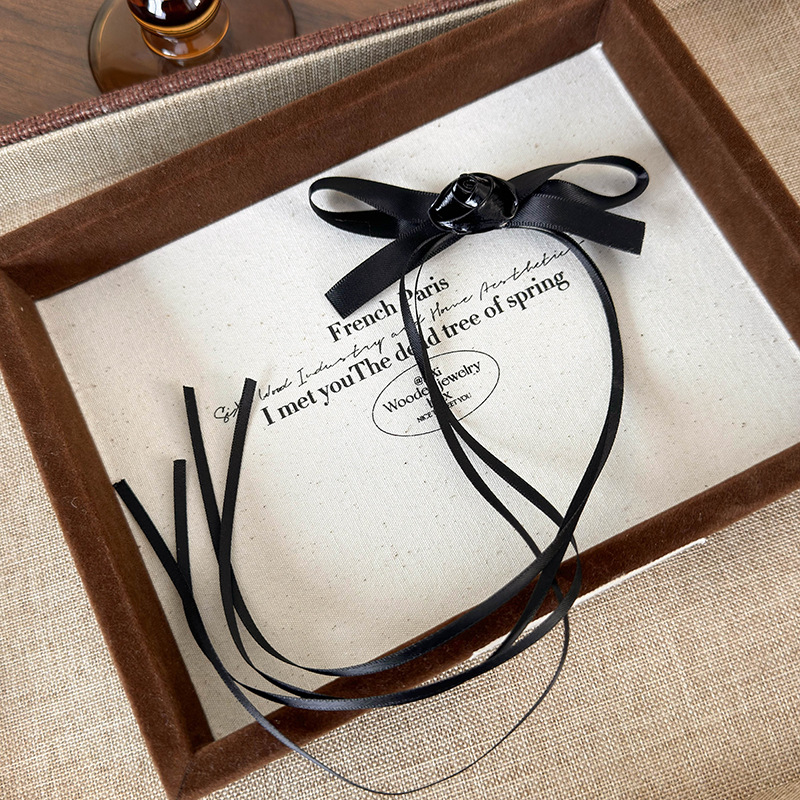 French Paris
Wood Industry and Home Aesthetics
I met youThe dead tree of spring
Wooden jewelry
box
NICE MEET YOU